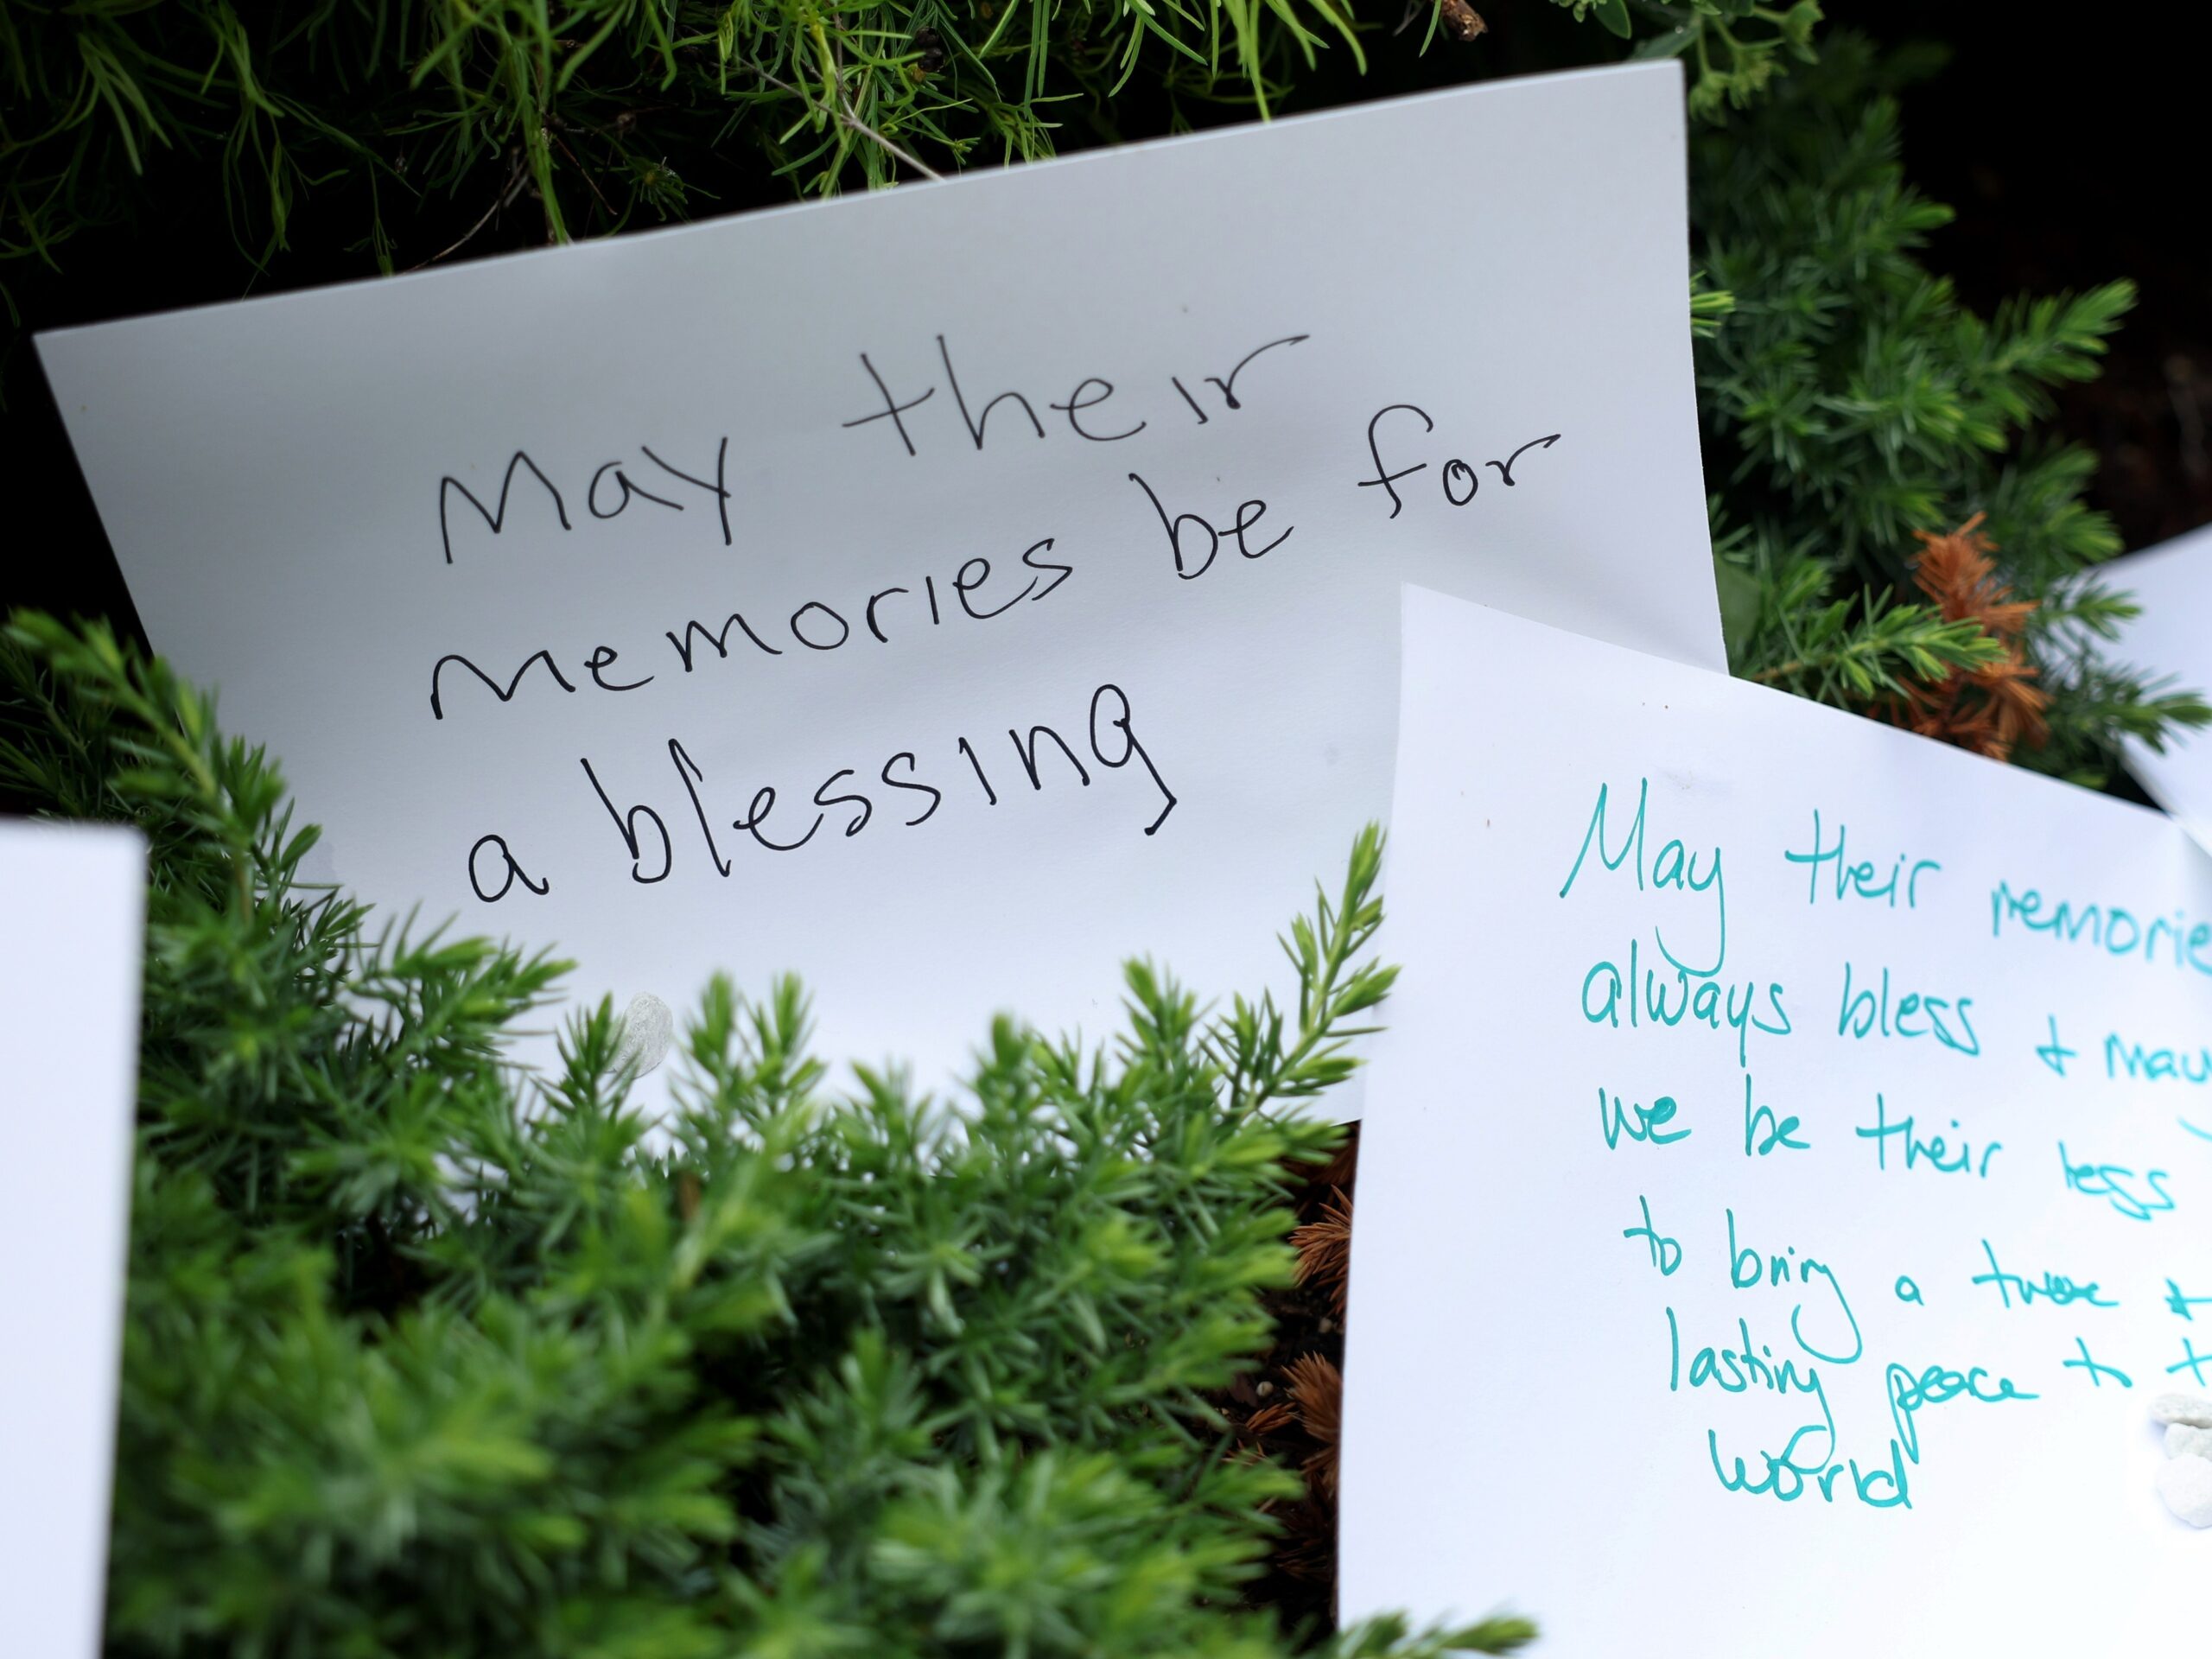 May their
memories be for
a blessing
May their
always bless + may
we be their
to bring a
lasting peace to
world